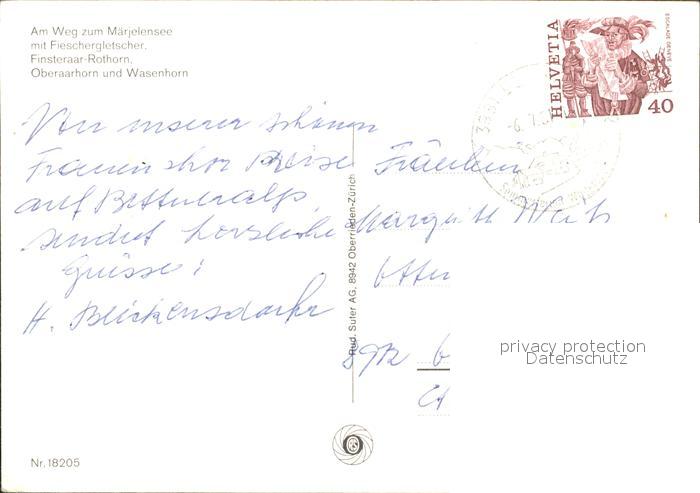 Am Weg zum Märjelensee
mit Fieschergletscher,
Finsteraar-Rothorn,
Oberaarhorn und Wasenhorn
HELVETIA
ESCALADE GENEVE
40
Von unserer schönen
Frauenchor Reise
auf Bettmeralp,
sendet herzliche
Grüsse!
H. Blickensdorfer
Fräulein
Margrith
Rud. Suter AG, 8942 Oberrieden-Zürich
privacy protection
Datenschutz
Nr. 18205